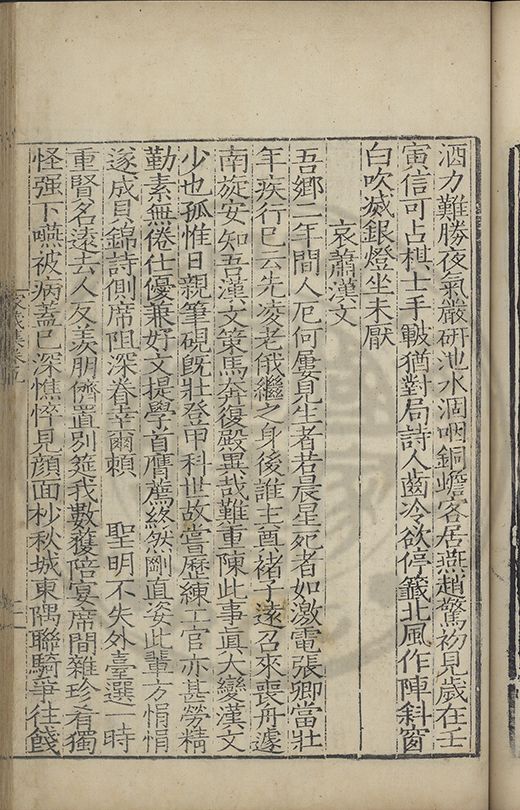 酒力難勝夜氣嚴研池水涸咽銅蟾客居燕趙驚初見歲在壬
寅信可占棋士手皸猶對局詩人齒冷欲停籤北風作陣斜窗
白吹滅銀燈坐未厭
哀蕭漢文
吾鄉二年間人厄何屢見生者若晨星死者如激電張卿當壯
年疾行已云先凌老俄繼之身後誰主奠褚子遠召來喪舟遽
南旋安知吾漢文策馬奔復殿異哉難重陳此事眞大變漢文
少也孤惟日親筆硯旣壯登甲科世故嘗歷練工官亦甚勞精
勤素無倦仕優兼好文提學首膺薦終然剛直姿此輩方悁悁
遂成貝錦詩側席阻深眷幸爾賴 聖明不失外臺選一時
重賢名遠去人反羨朋儕置別筵我數獲陪宴席間雜珍肴獨
怪强下嚥被病蓋已深憔悴見顔面杪秋城東隅聯騎爭往餞